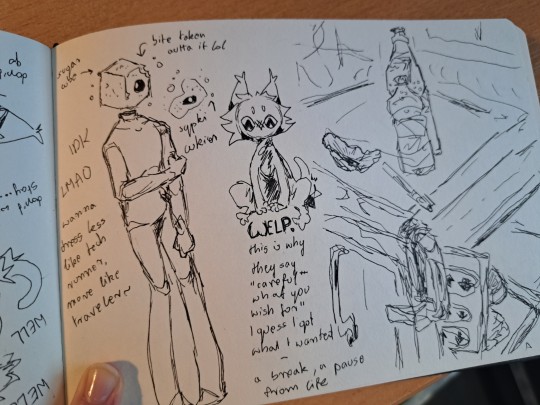 bite taken
outta it lol
sugar
cube
IDK
LMAO
wanna
dress less
like tech
runner,
more like
traveler~
WELP.
this is why
they say
"careful~
what you
wish for"
I guess I got
what I wanted
~
a break, a pause
from life